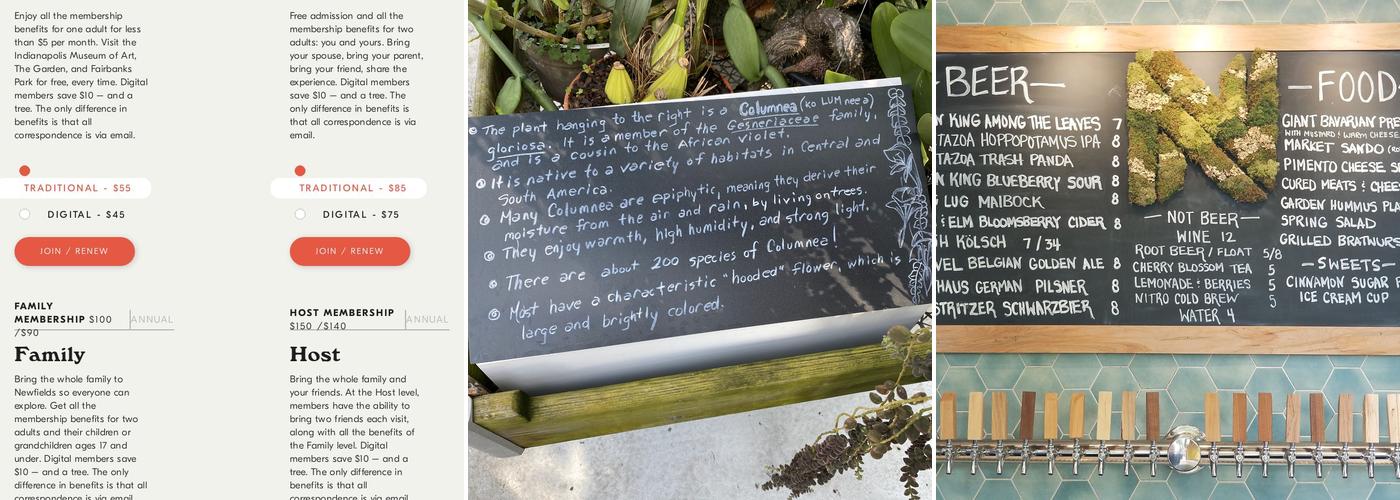 Enjoy all the membership
benefits for one adult for less
than $5 per month. Visit the
Indianapolis Museum of Art,
The Garden, and Fairbanks
Park for free, every time. Digital
members save $10 — and a
tree. The only difference in
benefits is that all
correspondence is via email.
TRADITIONAL - $55
DIGITAL - $45
JOIN / RENEW
FAMILY
MEMBERSHIP $100
/$90
ANNUAL
Family
Bring the whole family to
Newfields so everyone can
explore. Get all the
membership benefits for two
adults and their children or
grandchildren ages 17 and
under. Digital members save
$10 — and a tree. The only
difference in benefits is that all
correspondence is via email
Free admission and all the
membership benefits for two
adults: you and yours. Bring
your spouse, bring your parent,
bring your friend, share the
experience. Digital members
save $10 — and a tree. The
only difference in benefits is
that all correspondence is via
email.
TRADITIONAL - $85
DIGITAL - $75
JOIN / RENEW
HOST MEMBERSHIP
$150 /$140
ANNUAL
Host
Bring the whole family and
your friends. At the Host level,
members have the ability to
bring two friends each visit,
along with all the benefits of
the Family level. Digital
members save $10 — and a
tree. The only difference in
benefits is that all
correspondence is via email
The plant hanging to the right is a Columnea (ko LUM nee a)
gloriosa. It is a member of the Gesneriaceae family,
and is a cousin to the African violet.
It is native to a variety of habitats in Central and
South America.
Many Columnea are epiphytic, meaning they derive their
moisture from the air and rain, by living on trees.
They enjoy warmth, high humidity, and strong light.
There are about 200 species of Columnea!
Most have a characteristic "hooded" flower, which is
large and brightly colored.
BEER—
KING AMONG THE LEAVES 7
TAZOA HOPPOPOTAMUS IPA 8
TAZOA TRASH PANDA 8
KING BLUEBERRY SOUR 8
LUG MAIBOCK 8
& ELM BLOOMSBERRY CIDER 8
KÖLSCH 7/34
BELGIAN GOLDEN ALE 8
HAUS GERMAN PILSNER 8
STRITZER SCHWARZBIER 8
N
— NOT BEER—
WINE 12
ROOT BEER / FLOAT 5/8
CHERRY BLOSSOM TEA 5
LEMONADE & BERRIES 5
NITRO COLD BREW 5
WATER 4
—FOOD
GIANT BAVARIAN PRE
WITH MUSTARD & WARM CHEESE
MARKET SANDO
PIMENTO CHEESE S
CURED MEATS & CHEE
GARDEN HUMMUS PLA
SPRING SALAD
GRILLED BRATWURS
—SWEETS—
CINNAMON SUGAR P
ICE CREAM CUP